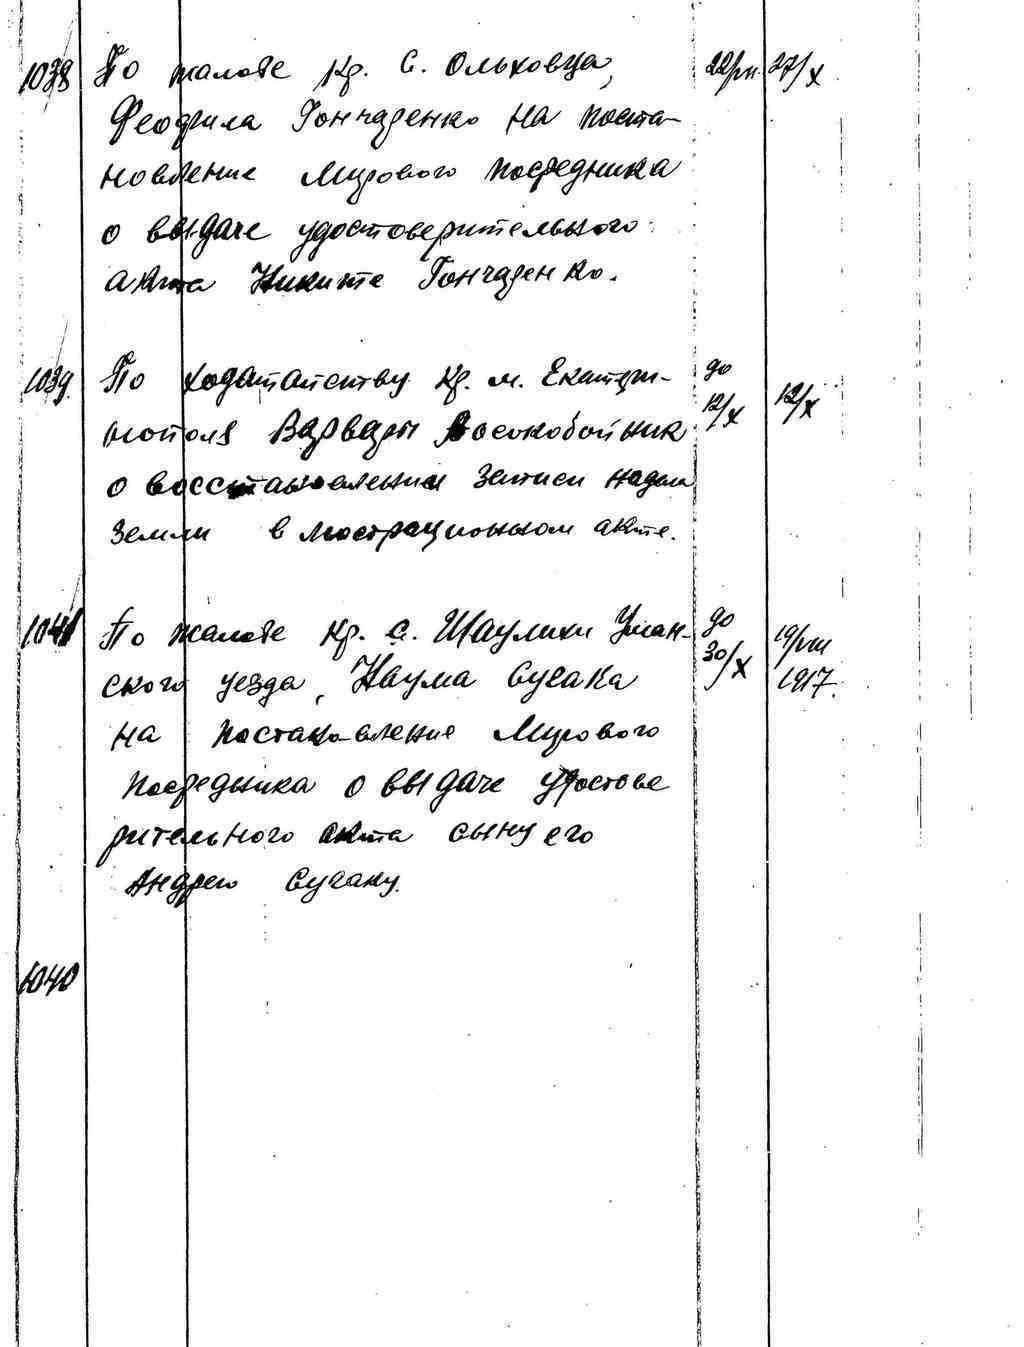 1038 По жалобе кр. с. Ольховца, 27/X
Феофила Гончаренко на поста-
новление Мирового посредника
о выдаче удостоверительного
акта Никите Гончаренко.
1039. По ходатайству кр. м. Екатери- до
нополя Варвары Воскобойник 12/X 12/X
о восстановлении записи надела
земли в люстрационном акте.
1041 По жалобе кр. с. Шаулихи Уман- до
ского уезда, Наума Сусака 30/X 1917.
на постановление Мирового
посредника о выдаче удостове
рительного акта сыну его
Андрею Сусаку.
1040